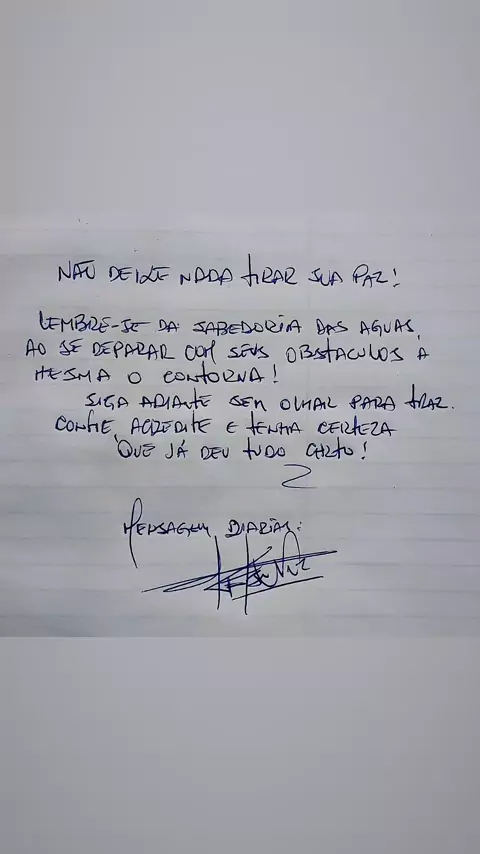 NÃO DEIXE NADA TIRAR SUA PAZ!
LEMBRE-SE DA SABEDORIA DAS AGUAS,
AO SE DEPARAR COM SEUS OBSTACULOS A
MESMA O CONTORNA!
SIGA ADIANTE SEM OLHAR PARA TRAZ.
CONFIE, ACREDITE E TENHA CERTEZA
QUE JÁ DEU TUDO CERTO!
MENSAGEM DIARIAS: